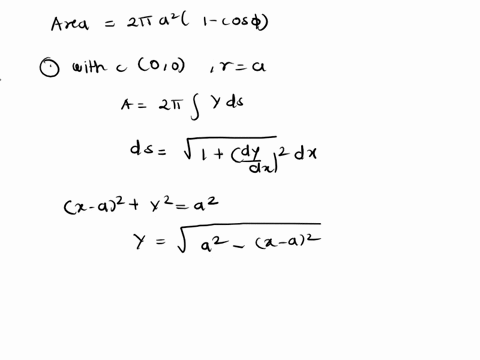 Area = 2π a² ( 1 - cosϕ)
○ with c (0,0) , r = a
A = 2π ∫ Y ds
ds = √(1 + (dy/dx)²) dx
(x-a)² + Y² = a²
Y = √(a² - (x-a)²)